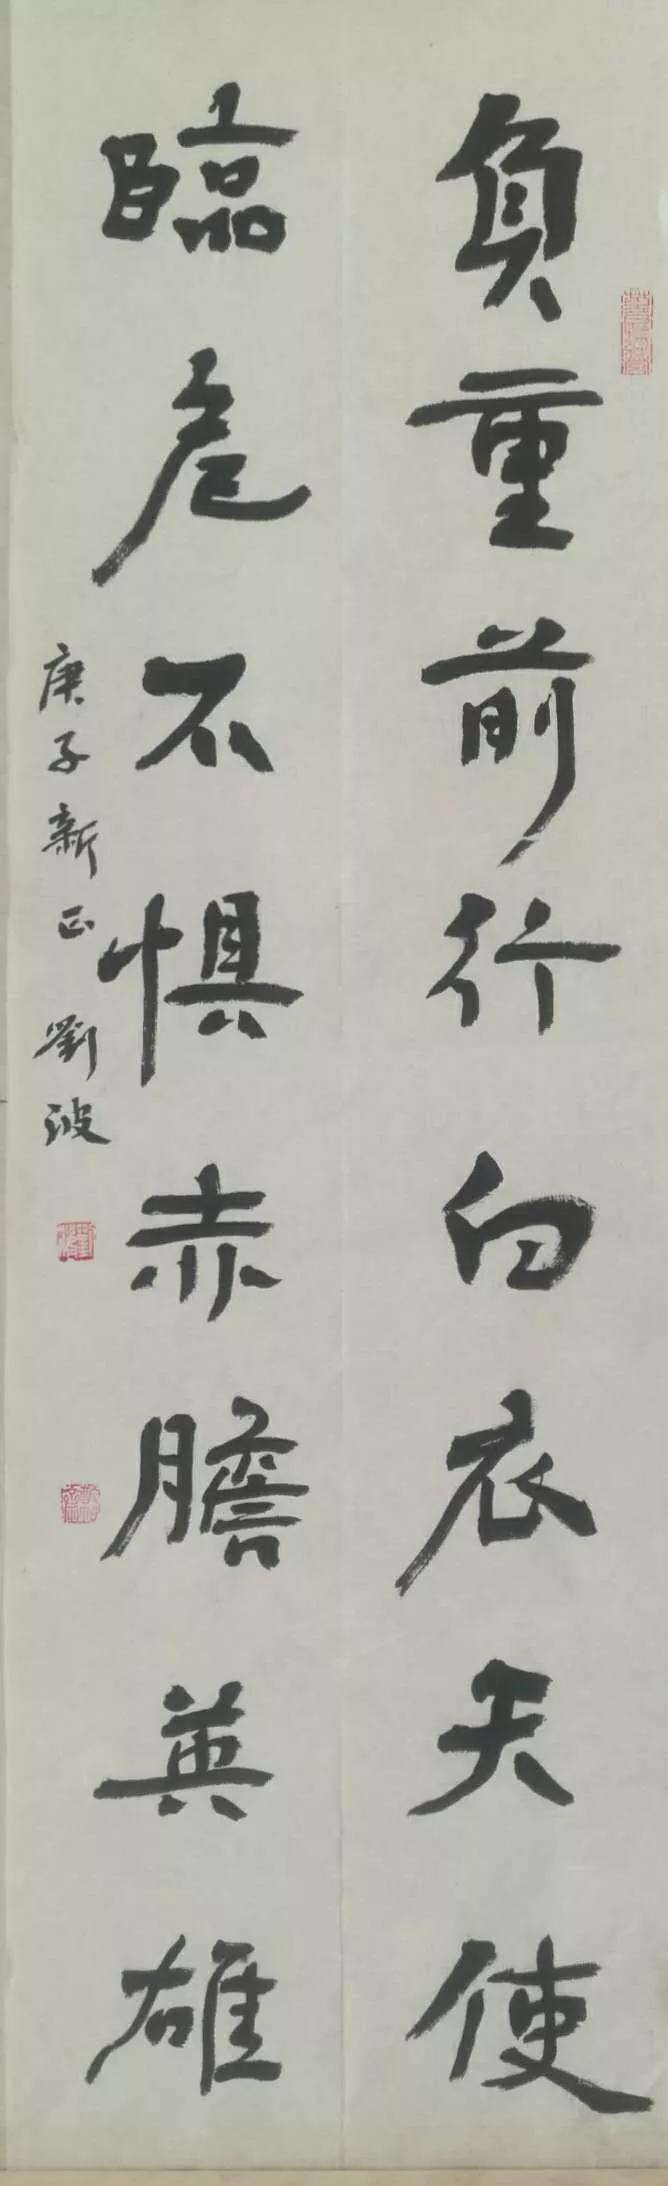 負重前行白衣天使
臨危不惧赤膽英雄
庚子新正劉波